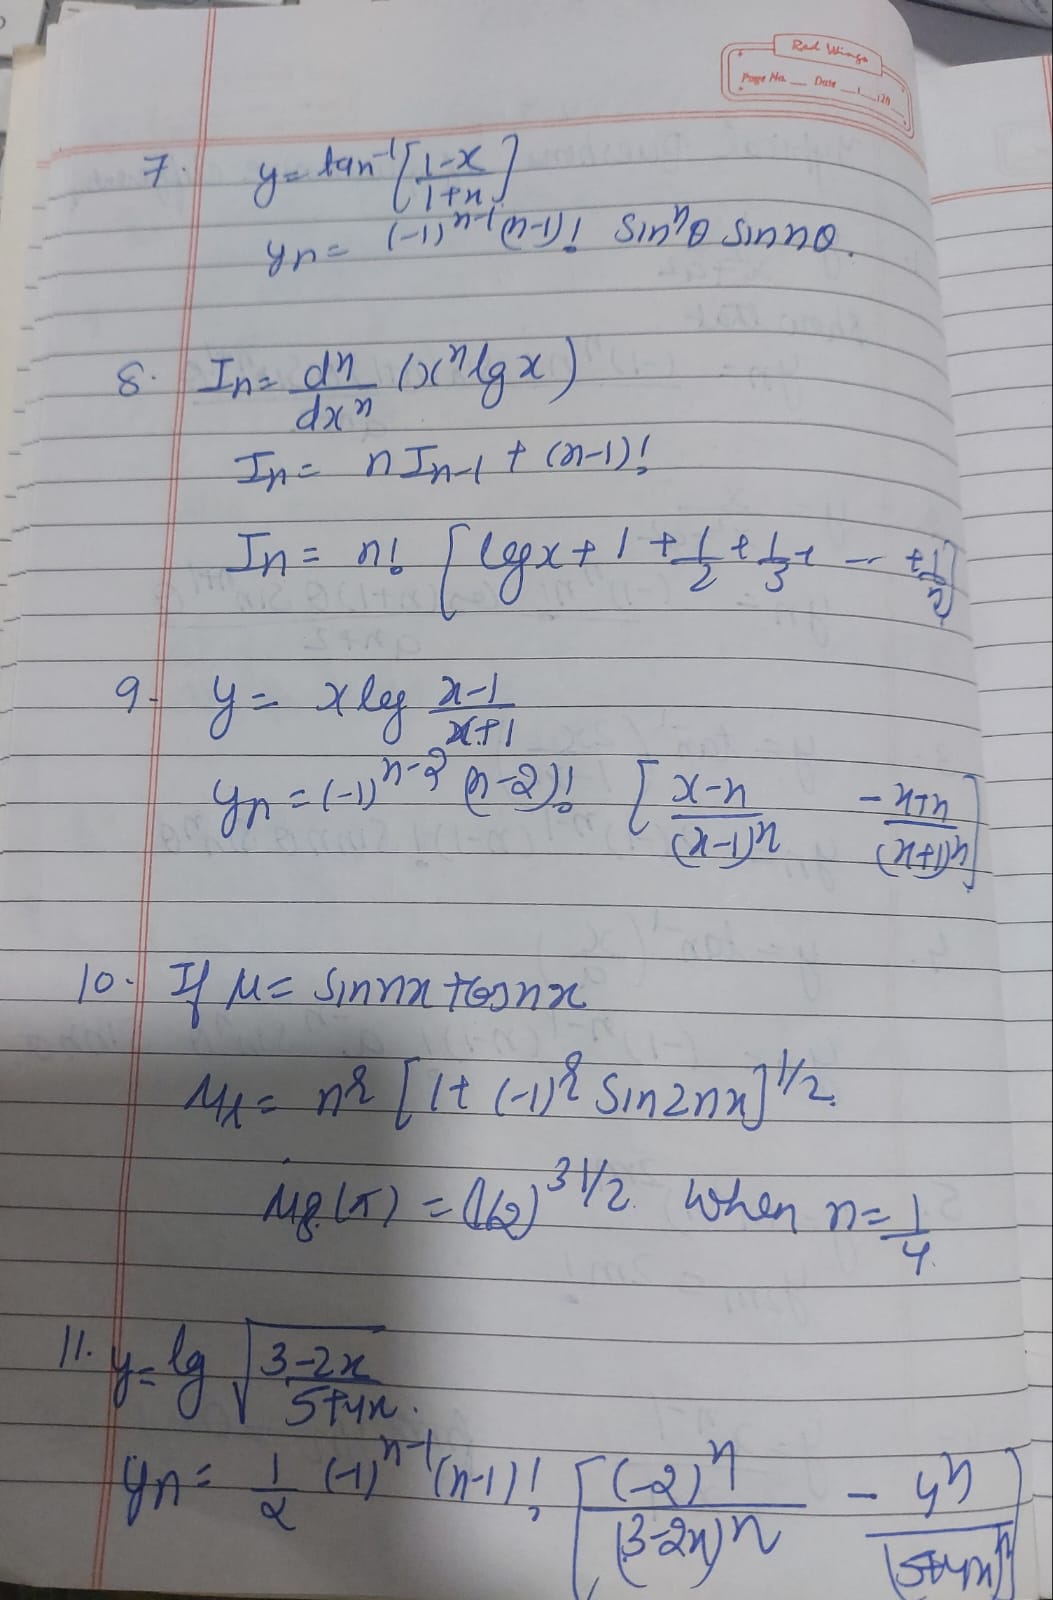 Red Wings
Page No. Date / /20
7. y = tan⁻¹ [(1-x)/(1+x)]
yn = (-1)ⁿ⁻¹ (n-1)! sinⁿθ sin nθ.
8. In = dⁿ/dxⁿ (xⁿ lg x)
In = n In-1 + (n-1)!
In = n! [lg x + 1 + 1/2 + 1/3 + -- + 1/n]
9. y = x lg (x-1)/(x+1)
yn = (-1)ⁿ⁻² (n-2)! [(x-n)/(x-1)ⁿ - (x+n)/(x+1)ⁿ]
10. If μ = sin nx + cos nx
μr = nʳ [1 + (-1)ʳ sin 2nx]^1/2.
μ8(π) = (1/2)^31/2 when n = 1/4.
11. y = lg √((3-2x)/(5+4x)).
yn = 1/2 (-1)ⁿ⁻¹ (n-1)! [(-2)ⁿ/(3-2x)ⁿ - 4ⁿ/(5+4x)ⁿ]